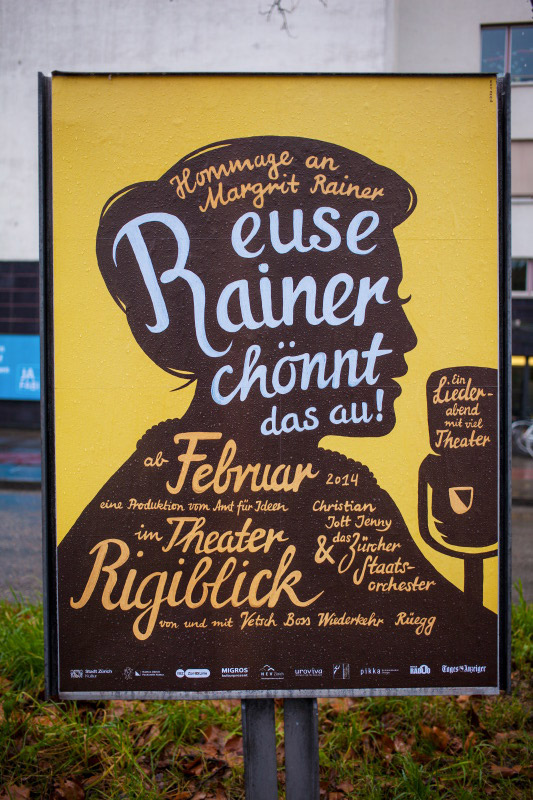 Hommage an
Margrit Rainer
euse
Rainer
chönnt
das au!
Ein
Lieder-
abend
mit viel
Theater
ab Februar 2014
eine Produktion vom Amt für Ideen
im Theater
Rigiblick
Christian
Jott Jenny
& das Zürcher
Staats-
orchester
von und mit Vetsch Boss Wiederkehr Rüegg
Stadt Zürich
Kultur
MIGROS
uroviva
pikka
Tages Anzeiger
JA